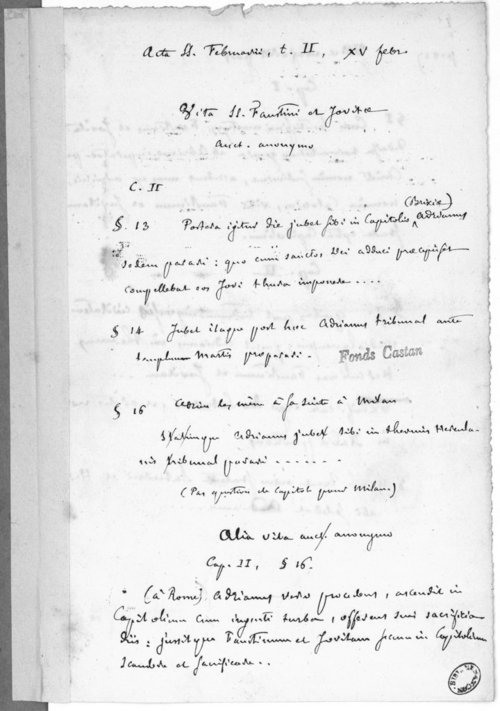 Acta SS. Februarii, t. II, XV febr.
Vita SS. Faustini et Jovitæ
auct. anonymo
C. II
§. 13 Postera igitur die jubet sibi in Capitolio (Brixiæ) Adrianus
sedem parari : quo cum sanctos Dei adduci præcepisset
compellebat eos Jovi thura imponere ....
§ 14 Jubet itaque post hæc Adrianus tribunal ante
templum Martis præparari.
Fonds Castan
§ 16 Adrien les mène à sa suite à Milan
Adrianus jubet sibi in thermis Hercula-
neis tribunal parari .......
(Pas question de Capitole pour Milan.)
Alia vita auct. anonymo
Cap. II, § 16.
(à Rome) Adrianus vero procedens, ascendit in
Capitolium cum ingenti turba, offerens sua sacrificia
diis : jussitque Faustinum et Jovitam secum in Capitolium
scandere et sacrificare..